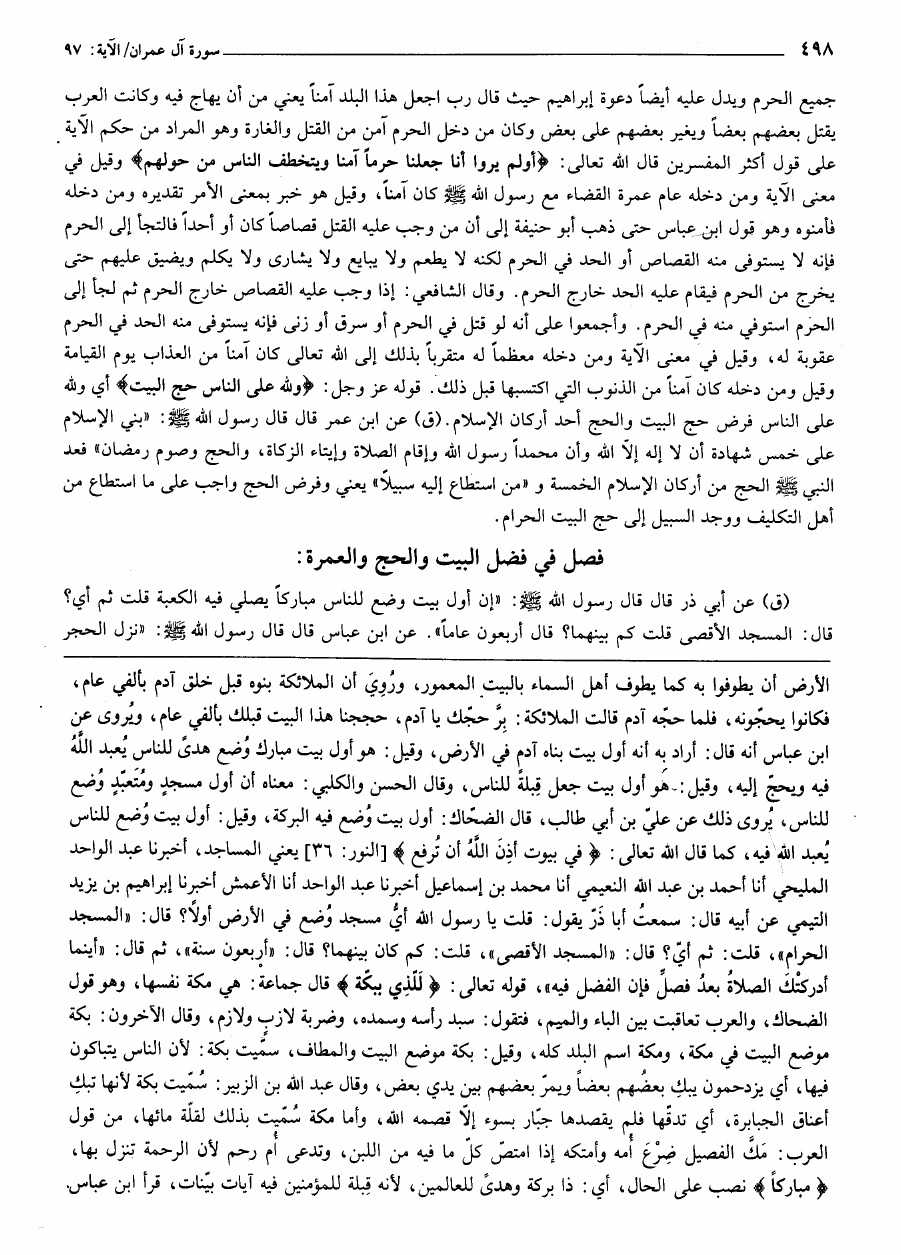 ٤٩٨ سورة آل عمران/ الآية: ٩٧
جميع الحرم ويدل عليه أيضاً دعوة إبراهيم حيث قال رب اجعل هذا البلد آمناً يعني من أن يهاج فيه وكانت العرب
يقتل بعضهم بعضاً ويغير بعضهم على بعض وكان من دخل الحرم آمن من القتل والغارة وهو المراد من حكم الآية
على قول أكثر المفسرين قال الله تعالى: ﴿أولم يروا أنا جعلنا حرماً آمنا ويتخطف الناس من حولهم﴾ وقيل في
معنى الآية ومن دخله عام عمرة القضاء مع رسول الله ﷺ كان آمناً، وقيل هو خبر بمعنى الأمر تقديره ومن دخله
فأمنوه وهو قول ابن عباس حتى ذهب أبو حنيفة إلى أن من وجب عليه القتل قصاصاً كان أو أحداً فالتجأ إلى الحرم
فإنه لا يستوفى منه القصاص أو الحد في الحرم لكنه لا يطعم ولا يبايع ولا يشارى ولا يكلم ويضيق عليهم حتى
يخرج من الحرم فيقام عليه الحد خارج الحرم. وقال الشافعي: إذا وجب عليه القصاص خارج الحرم ثم لجأ إلى
الحرم استوفي منه في الحرم. وأجمعوا على أنه لو قتل في الحرم أو سرق أو زنى فإنه يستوفى منه الحد في الحرم
عقوبة له، وقيل في معنى الآية ومن دخله معظماً له متقرباً بذلك إلى الله تعالى كان آمناً من العذاب يوم القيامة
وقيل ومن دخله كان آمناً من الذنوب التي اكتسبها قبل ذلك. قوله عز وجل: ﴿ولله على الناس حج البيت﴾ أي ولله
على الناس فرض حج البيت والحج أحد أركان الإسلام. (ق) عن ابن عمر قال قال رسول الله ﷺ: «بني الإسلام
على خمس شهادة أن لا إله إلاّ الله وأن محمداً رسول الله وإقام الصلاة وإيتاء الزكاة، والحج وصوم رمضان» فعد
النبي ﷺ الحج من أركان الإسلام الخمسة و «من استطاع إليه سبيلاً» يعني وفرض الحج واجب على ما استطاع من
أهل التكليف ووجد السبيل إلى حج البيت الحرام.
فصل في فضل البيت والحج والعمرة:
(ق) عن أبي ذر قال قال رسول الله ﷺ: «إن أول بيت وضع للناس مباركاً يصلي فيه الكعبة قلت ثم أي؟
قال: المسجد الأقصى قلت كم بينهما؟ قال أربعون عاماً». عن ابن عباس قال قال رسول الله ﷺ: «نزل الحجر
الأرض أن يطوفوا به كما يطوف أهل السماء بالبيت المعمور، ورُوِيَ أن الملائكة بنوه قبل خلق آدم بألفي عام،
فكانوا يحجّونه، فلما حجّه آدم قالت الملائكة: بِرَّ حجّك يا آدم، حججنا هذا البيت قبلك بألفي عام، ويُروى عن
ابن عباس أنه قال: أراد به أنه أول بيت بناه آدم في الأرض، وقيل: هو أول بيت مبارك وُضع هدىً للناس يُعبد اللَّهُ
فيه ويحجّ إليه، وقيل: هو أول بيت جعل قِبلةً للناس، وقال الحسن والكلبي: معناه أن أول مسجدٍ ومُتَعبّدٍ وُضع
للناس، يُروى ذلك عن عليّ بن أبي طالب، قال الضحّاك: أول بيت وُضع فيه البركة، وقيل: أول بيت وُضع للناس
يُعبد الله فيه، كما قال الله تعالى: ﴿ في بيوت أذِنَ اللَّهُ أن تُرفع ﴾ [النور: ٣٦] يعني المساجد، أخبرنا عبد الواحد
المليحي أنا أحمد بن عبد الله النعيمي أنا محمد بن إسماعيل أخبرنا عبد الواحد أنا الأعمش أخبرنا إبراهيم بن يزيد
التيمي عن أبيه قال: سمعتُ أبا ذَرّ يقول: قلت يا رسول الله أيُّ مسجد وُضع في الأرض أولًا؟ قال: «المسجد
الحرام»، قلت: ثم أيّ؟ قال: «المسجد الأقصى»، قلت: كم كان بينهما؟ قال: «أربعون سنة»، ثم قال: «أينما
أدركتْكَ الصلاةُ بعدُ فصلِّ فإن الفضل فيه»، قوله تعالى: ﴿ لَلَّذي ببكّة ﴾ قال جماعة: هي مكة نفسها، وهو قول
الضحاك، والعرب تعاقبت بين الباء والميم، فتقول: سبد رأسه وسمده، وضربة لازبٍ ولازم، وقال الآخرون: بكة
موضع البيت في مكة، ومكة اسم البلد كله، وقيل: بكة موضع البيت والمطاف، سمّيت بكة: لأن الناس يتباكون
فيها، أي يزدحمون يبكِ بعضُهم بعضاً ويمرّ بعضهم بين يدي بعض، وقال عبد الله بن الزبير: سُمّيت بكة لأنها تبكِ
أعناق الجبابرة، أي تدقّها فلم يقصدها جبّار بسوء إلّا قصمه الله، وأما مكة سُمّيت بذلك لقلّة مائها، من قول
العرب: مَكَّ الفصيل ضِرْعَ أمه وأمتكه إذا امتصّ كلّ ما فيه من اللبن، وتدعى أُم رحم لأن الرحمة تنزل بها،
﴿ مباركاً ﴾ نصب على الحال، أي: ذا بركة وهدىً للعالمين، لأنه قِبلة للمؤمنين فيه آيات بيّنات، قرأ ابن عباس.